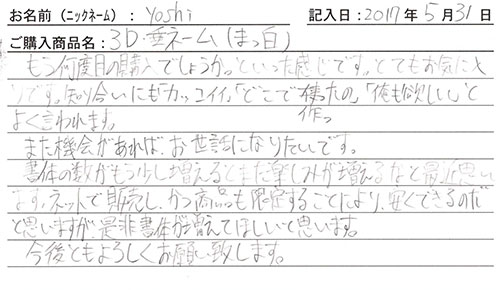 お名前（ニックネーム）：Yoshi 記入日：2017年5月31日
ご購入商品名：3D.垂ネーム（まっ白）
もう何度目の購入でしょうか。といった感じです。とてもお気に入
りです。知り合いにも「カッコイイ」「どこで作ったの」「俺も欲しい」と
よく言われます。
また機会があれば、お世話になりたいです。
書体の数がもう少し増えるとまた楽しみが増えるなと最近思い
ます。ネットで販売し、かつ商品も限定することにより、安くできるのだ
と思いますが、是非書体が増えてほしいと思います。
今後ともよろしくお願い致します。